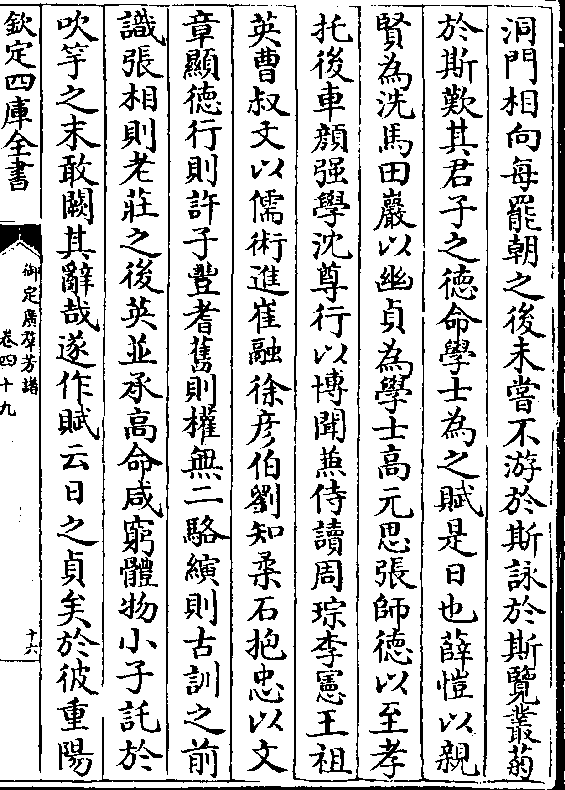 洞門相向每罷朝之後未嘗不游於斯詠於斯覽叢菊
於斯歎其君子之德命學士為之賦是日也薛愷以親
賢為洗馬田巖以幽貞為學士高元思張師德以至孝
托後車顔强學沈尊行以博聞兼侍讀周琮李憲王祖
英曹叔文以儒術進崔融徐彦伯劉知柔石抱忠以文
章顯德行則許子豐耆舊則權無二駱縯則古訓之前
識張相則老莊之後英並承高命咸窮體物小子託於
吹竽之末敢闕其辭哉遂作賦云日之貞矣於彼重陽
欽定四庫全書
御定廣羣芳譜
卷四十九
十六